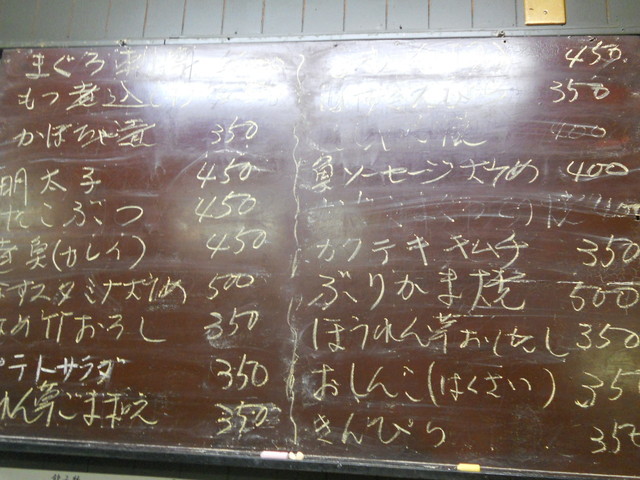 まぐろ刺
もつ煮込
かぼちゃ煮 350
明太子 450
たこぶつ 450
煮魚(カレイ) 450
なすスタミナ炒め 500
なめ竹おろし 350
ポテトサラダ 350
れん草ごま和え 350
450
350
400
魚ソーセージ炒め 400
カクテキ キムチ 350
ぶりかま焼 500
ほうれん草おひたし 350
おしんこ(はくさい) 35
きんぴら 350